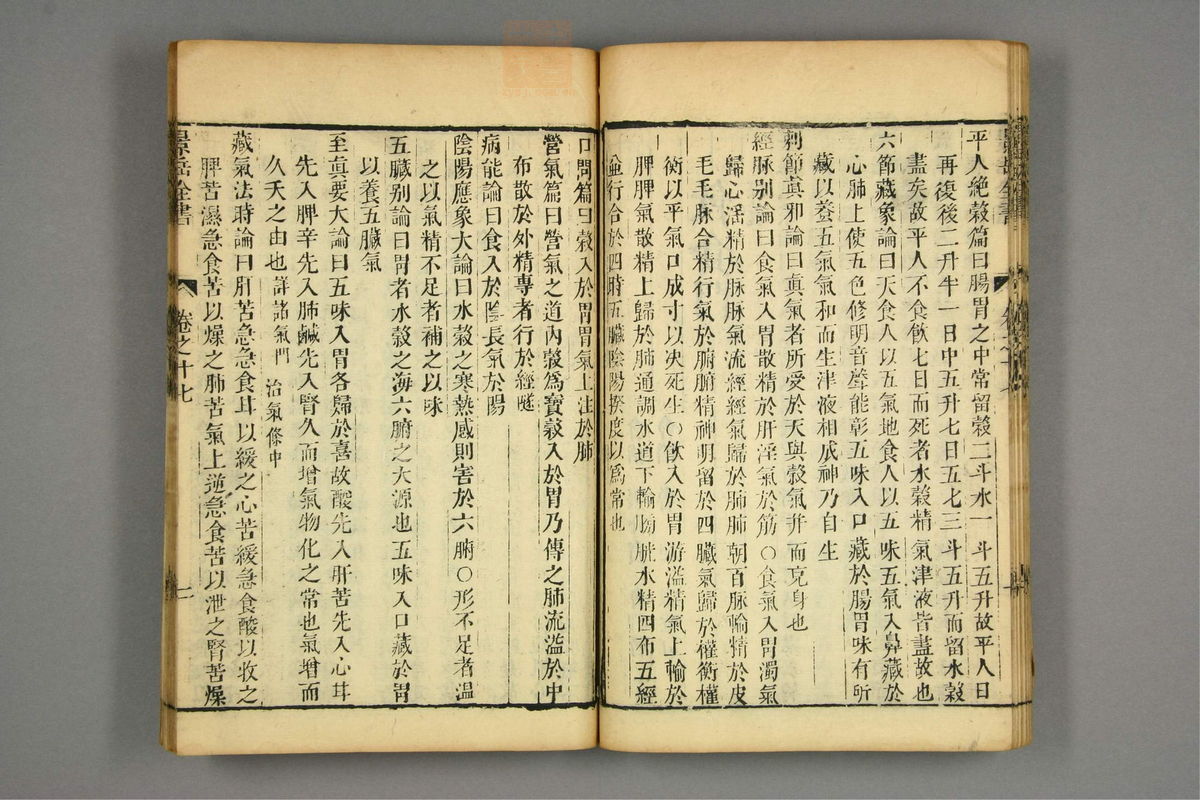 平人絶穀篇曰腸胃之中常留穀二斗水一斗五升故平人日
再復後二升半一日中五升七日五七三斗五升而留水穀
盡矣故平人不食飲七日而死者水穀精氣津液皆盡故也
六節藏象論曰天食人以五氣地食人以五味五氣入鼻藏於
心肺上使五色修明音聲能彰五味入口藏於腸胃味有所
藏以養五氣氣和而生津液相成神乃自生
刺節眞邪論曰眞氣者所受於天與穀氣并而克身也
經脉别論曰食氣入胃散精於肝淫氣於筋○食氣入胃濁氣
歸心淫精於脉脉氣流經經氣歸於肺肺朝百脉輸精於皮
毛毛脉合精行氣於腑腑精神明留於四臟氣歸於權衡權
衡以平氣口成寸以决死生○飲入於胃游溢精氣上輸於
脾脾氣散精上歸於肺通調水道下輸膀胱水精四布五經
並行合於四時五臟陰陽揆度以爲常也
口問篇曰穀入於胃胃氣上注於肺
營氣篇曰營氣之道内穀爲寶穀入於胃乃傳之肺流溢於中
布散於外精專者行於經隧
病能論曰食入於陰長氣於陽
陰陽應象大論曰水穀之寒熱感則害於六腑○形不足者温
之以氣精不足者補之以味
五臟别論曰胃者水穀之海六腑之大源也五味入口藏於胃
以養五臟氣
至眞要大論曰五味入胃各歸於喜故酸先入肝苦先入心甘
先入脾辛先入肺鹹先入腎久而增氣物化之常也氣增而
久夭之由也詳諸氣門 治氣條中
藏氣法時論曰肝苦急急食甘以緩之心苦緩急食酸以收之
脾苦濕急食苦以燥之肺苦氣上逆急食苦以泄之腎苦燥
景岳全書 卷之十七